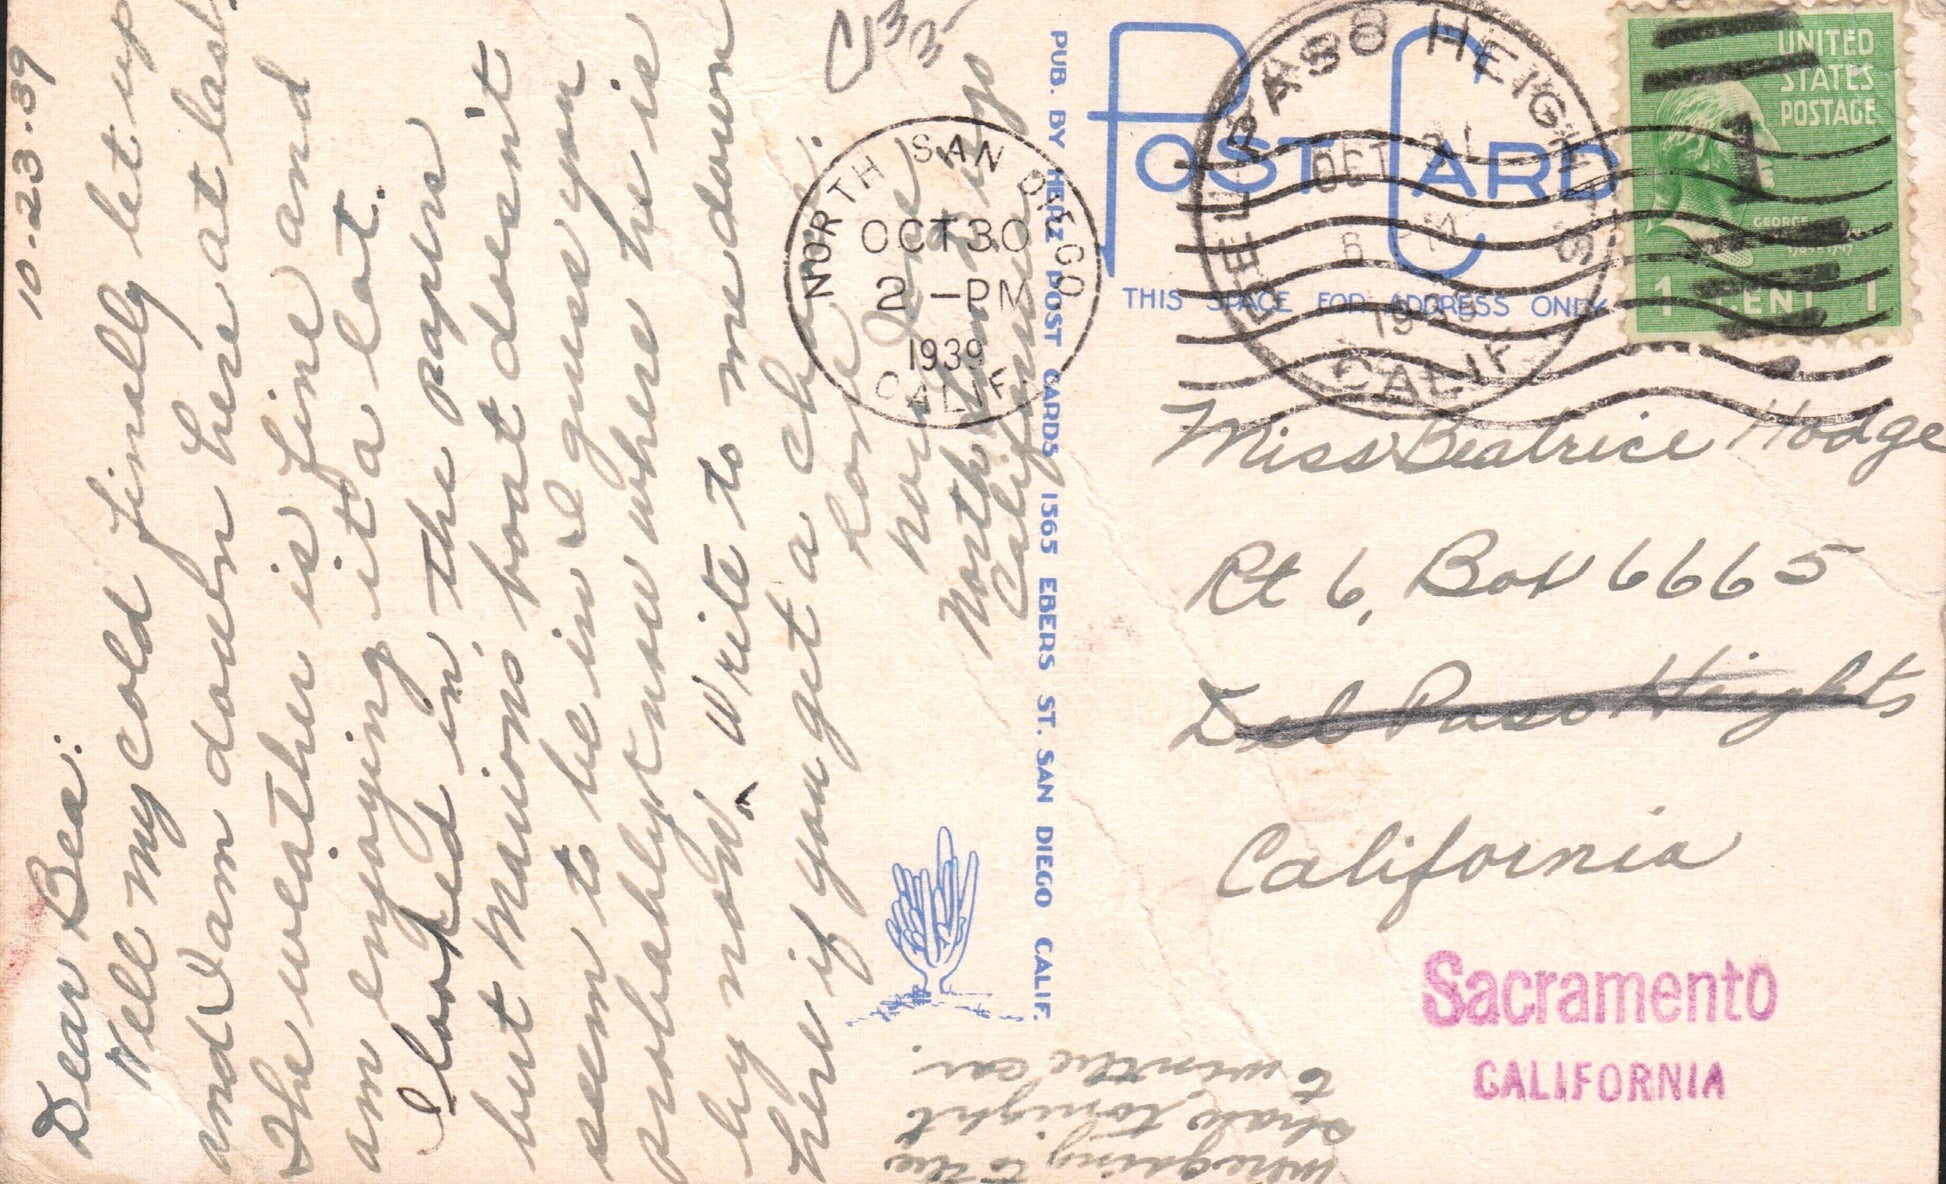 10-23-39
Dear Bea:
Well my cold finally let up
and I am down here at last.
The weather is fine and
am enjoying it a lot.
I looked in the papers
but Marions' boat doesn't
seem to be in I guess you
probably know where he is
by now. Write to me down
here if you get a chance.
Love
North
California
We're going to the
show tonight
to win the car.
PUB. BY HERZ POST CARDS 1565 EBERS ST. SAN DIEGO CALIF.
POST CARD
THIS SPACE FOR ADDRESS ONLY
NORTH SAN DIEGO
OCT 30
2 -PM
1939
CALIF.
DEL PASO HEIGHTS
OCT 31
PM
CALIF.
UNITED
STATES
POSTAGE
GEORGE
1 CENT 1
Miss Beatrice Hodge
Rt 6, Box 6665
Del Paso Heights
California
Sacramento
CALIFORNIA